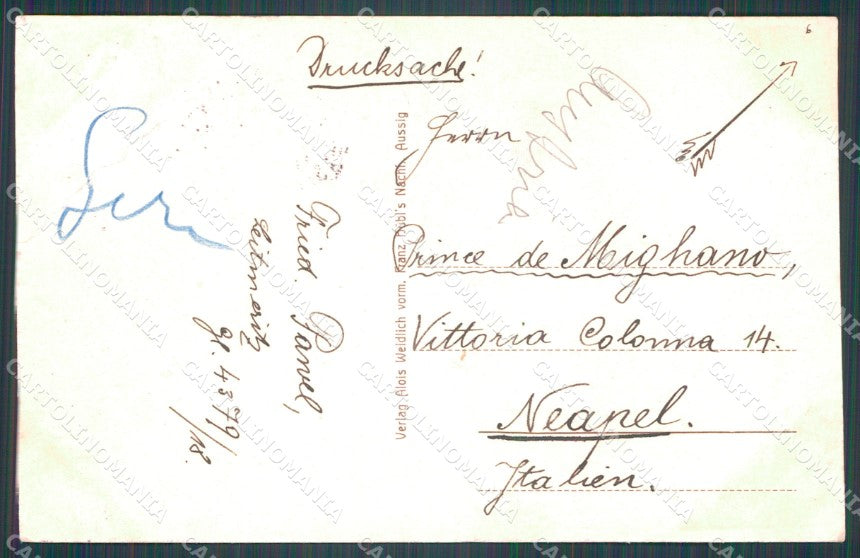 Drucksache!
Herrn
Prince de Mighano,
Vittoria Colonna 14.
Neapel.
Italien.
Verlag Alois Weidlich vorm. Franz Hübl's Nachf. Aussig
Fried. Panel,
Leitmeritz
4379/18.
6
CARTOLINOMANIA